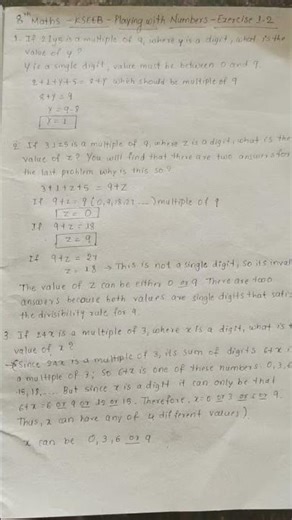 8th Maths - KSEEB - Playing with Numbers - Exercise 1.2
1. If 21y5 is a multiple of 9, where y is a digit, what is the
value of y?
y is a single digit, value must be between 0 and 9.
2+1+y+5 = 8+y which should be multiple of 9
8+y = 9
y = 9-8
y = 1
2. If 31z5 is a multiple of 9, where z is a digit, what is the
value of z? You will find that there are two answers for
the last problem. Why is this so?
3+1+z+5 = 9+z
If 9+z = 9 (0,9,18,27, ....) multiple of 9
z = 0
If 9+z = 18
z = 9
If 9+z = 27
z = 18 → This is not a single digit, so its inval
The value of z can be either 0 or 9. There are two
answers because both values are single digits that satis
the divisibility rule for 9.
3. If 24x is a multiple of 3, where x is a digit, what is t
value of x?
Since 24x is a multiple of 3, its sum of digits 6+x i
a multiple of 3; so 6+x is one of these numbers: 0, 3, 6
15, 18, .... But since x is a digit it can only be that
6+x = 6 or 9 or 12 or 15. Therefore, x = 0 or 3 or 6 or 9.
Thus, x can have any of 4 different values)
x can be 0, 3, 6 or 9